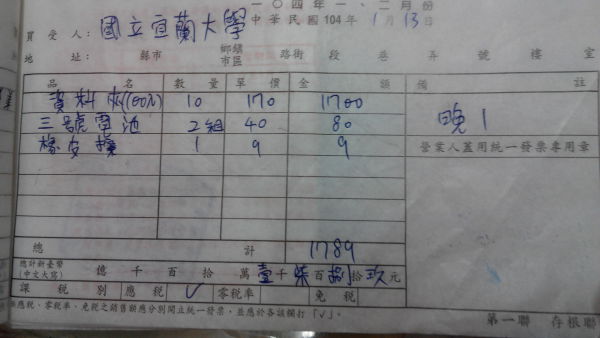 一〇四年一、二月份
買受人：國立宜蘭大學 中華民國104年1月13日
地址： 縣市 鄉鎮市區 路街 段 巷 弄 號 樓 室
品名 數量 單價 金額 備註
資料夾(100入) 10 170 1700
三號電池 2組 40 80 晚1
橡皮擦 1 9 9 營業人蓋用統一發票專用章
總計 1789
總計新臺幣(中文大寫) 億 千 百 拾 萬 壹千 柒百 捌拾 玖元
課稅別 應稅 ✓ 零稅率 免稅
應稅、零稅率、免稅之銷售額應分別開立統一發票，並應於各該欄打「✓」。
第一聯 存根聯